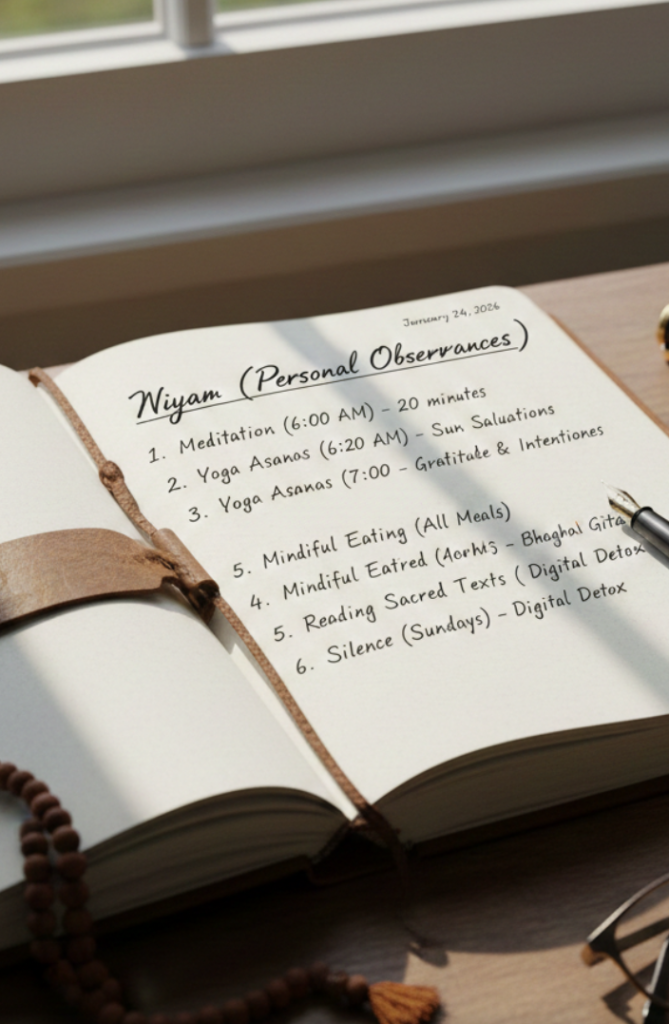 January 24, 2026
Niyam (Personal Observances)
1. Meditation (6:00 AM) – 20 minutes
2. Yoga Asanas (6:20 AM) – Sun Saluations
3. Yoga Asanas (7:00 – Gratitude & Intentiones
5. Mindiful Eating (All Meals)
4. Mindiful Eatred ( – Bhaghal Gita
5. Reading Sacred Texts ( Digital Detox
6. Silence (Sundays) – Digital Detox